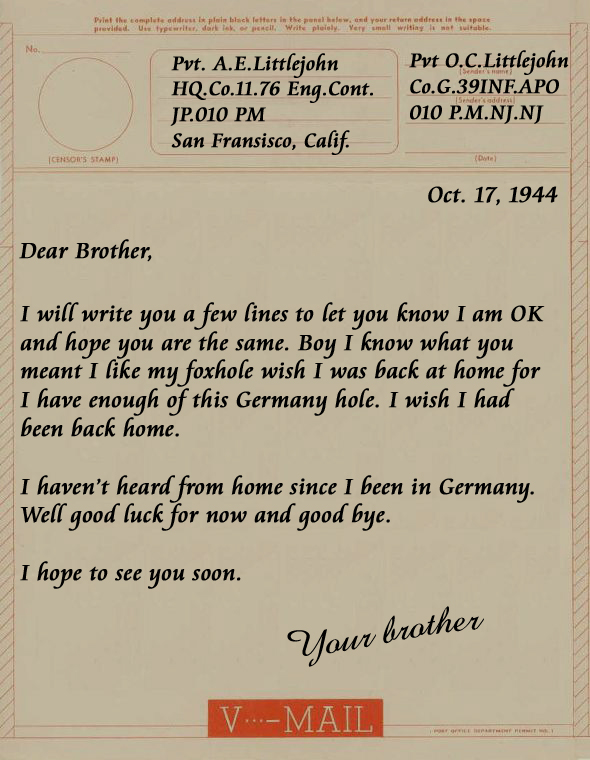 Print the complete address in plain block letters in the panel below, and your return address in the space
provided. Use typewriter, dark ink, or pencil. Write plainly. Very small writing is not suitable.
No.
Pvt. A.E.Littlejohn
HQ.Co.11.76 Eng.Cont.
JP.010 PM
San Fransisco, Calif.
(CENSOR'S STAMP)
Pvt O.C.Littlejohn
(Sender's name)
Co.G.39INF.APO
(Sender's address)
010 P.M.NJ.NJ
(Date)
Oct. 17, 1944
Dear Brother,
I will write you a few lines to let you know I am OK
and hope you are the same. Boy I know what you
meant I like my foxhole wish I was back at home for
I have enough of this Germany hole. I wish I had
been back home.
I haven't heard from home since I been in Germany.
Well good luck for now and good bye.
I hope to see you soon.
Your brother
V···–MAIL
(POST OFFICE DEPARTMENT PERMIT NO. )